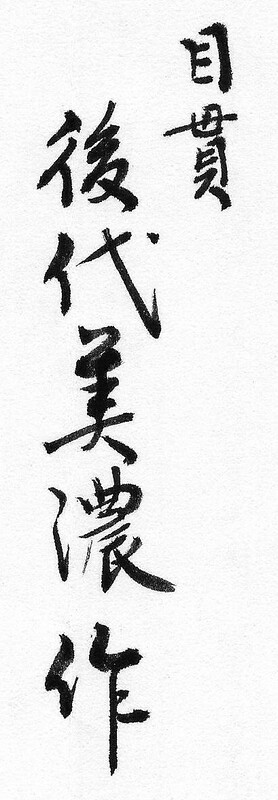 目貫
後代美濃作